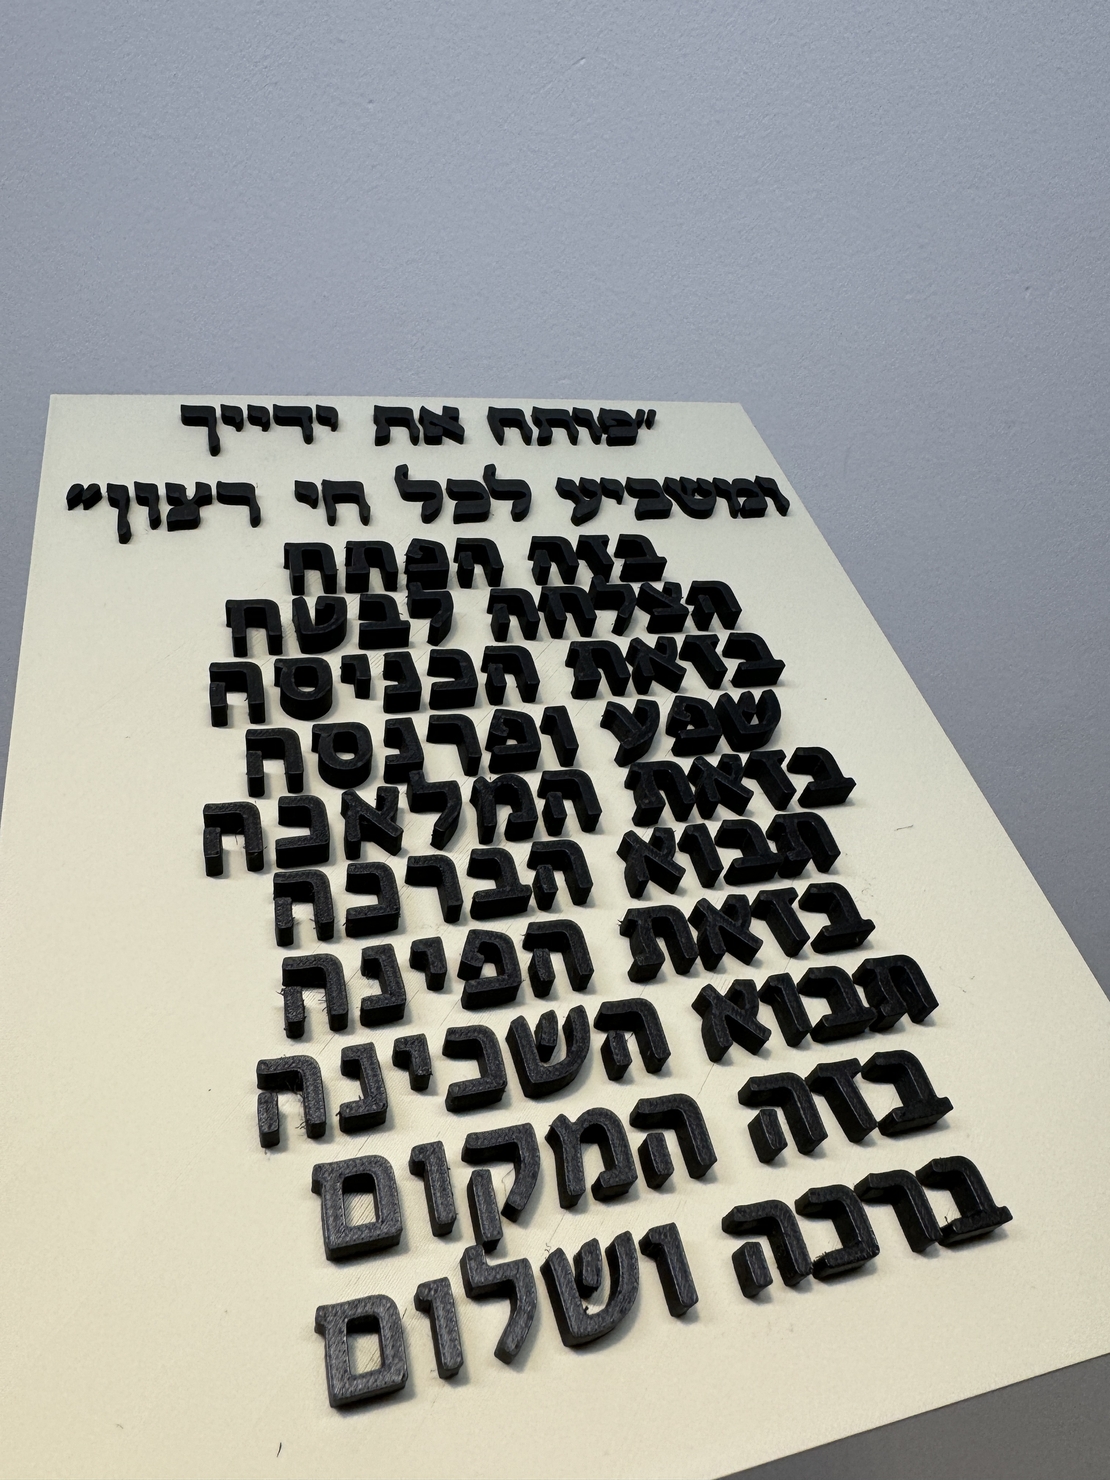 "פותח את ידייך
ומשביע לכל חי רצון"
בזה הפתח
הצלחה לבטח
בזאת הכניסה
שפע ופרנסה
בזאת המלאכה
תבוא הברכה
בזאת הפינה
תבוא השכינה
בזה המקום
ברכה ושלום